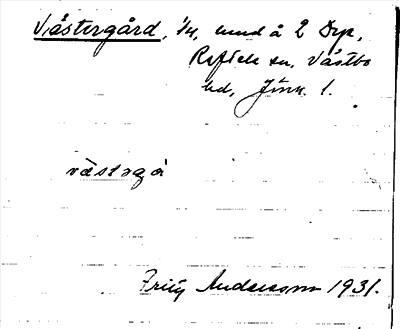 Västergård, 1/4, mud å 2 Dyp,
Reftele sn, Västbo
hd, Jönk. l.
västəgɑ
Fritz Andersson 1931.